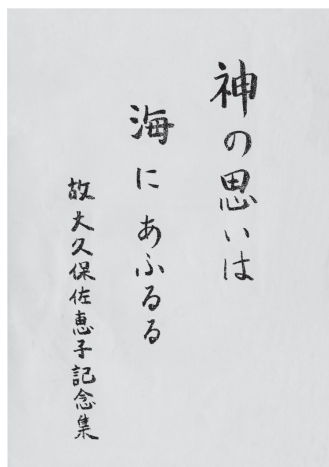 神の思いは
海にあふるる
故大久保佐恵子記念集